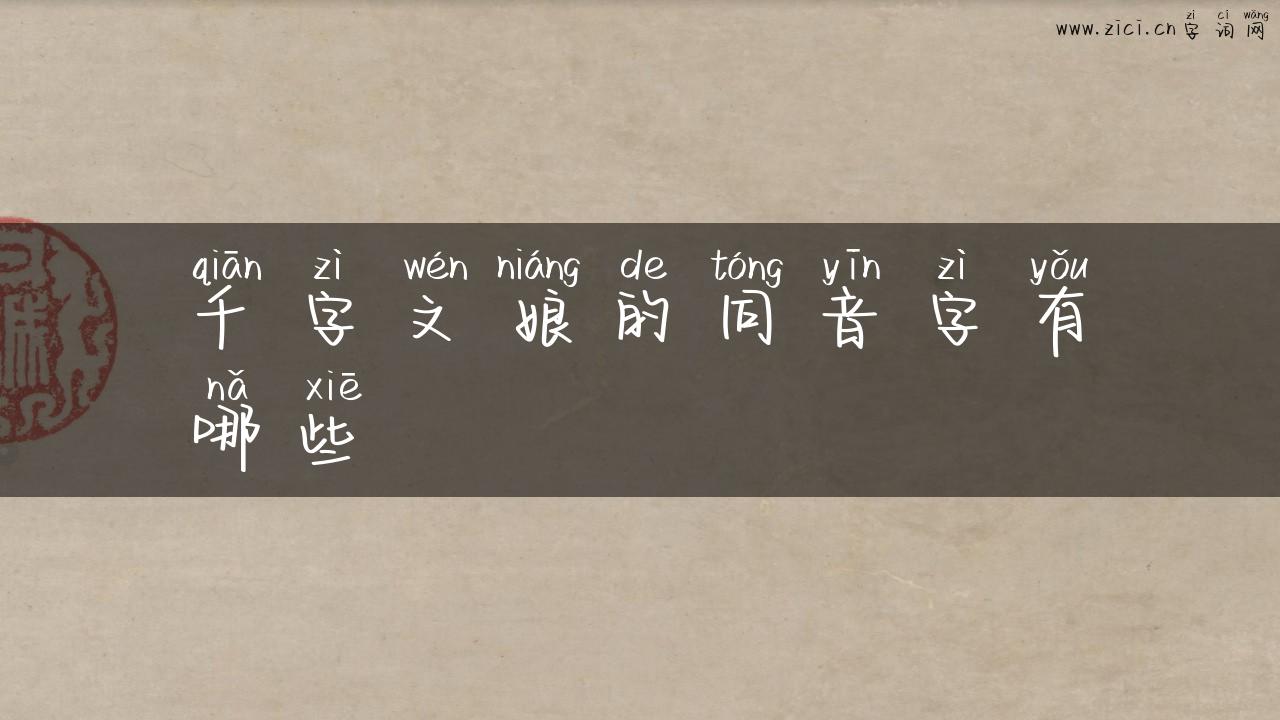 zì cí wǎng
www.zici.cn 字词网
qiān zì wén niáng de tóng yīn zì yǒu
千字文娘的同音字有
nǎ xiē
哪些